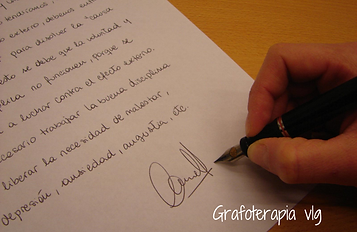 tendicamos,
exterior, debemos
para disolver la "causa
esto se debe que la voluntad y
no funcionen, porque se
a luchar contra el efecto externo.
trabajar la buena disciplina
liberar la necesidad de malestar,
depresión, ansiedad, angustia, etc.
Grafoterapia vlg